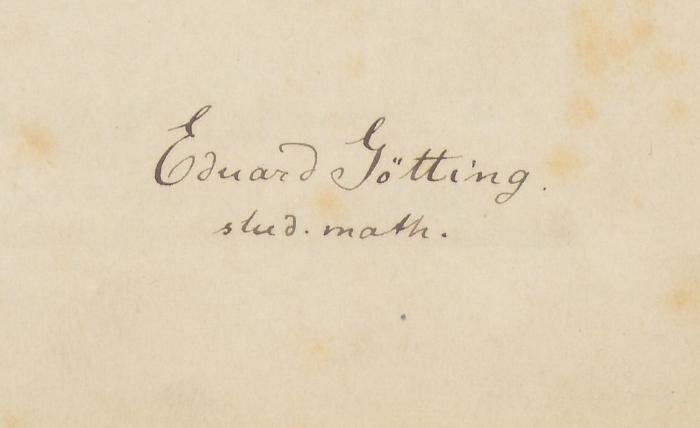 Eduard Götting.
stud. math.